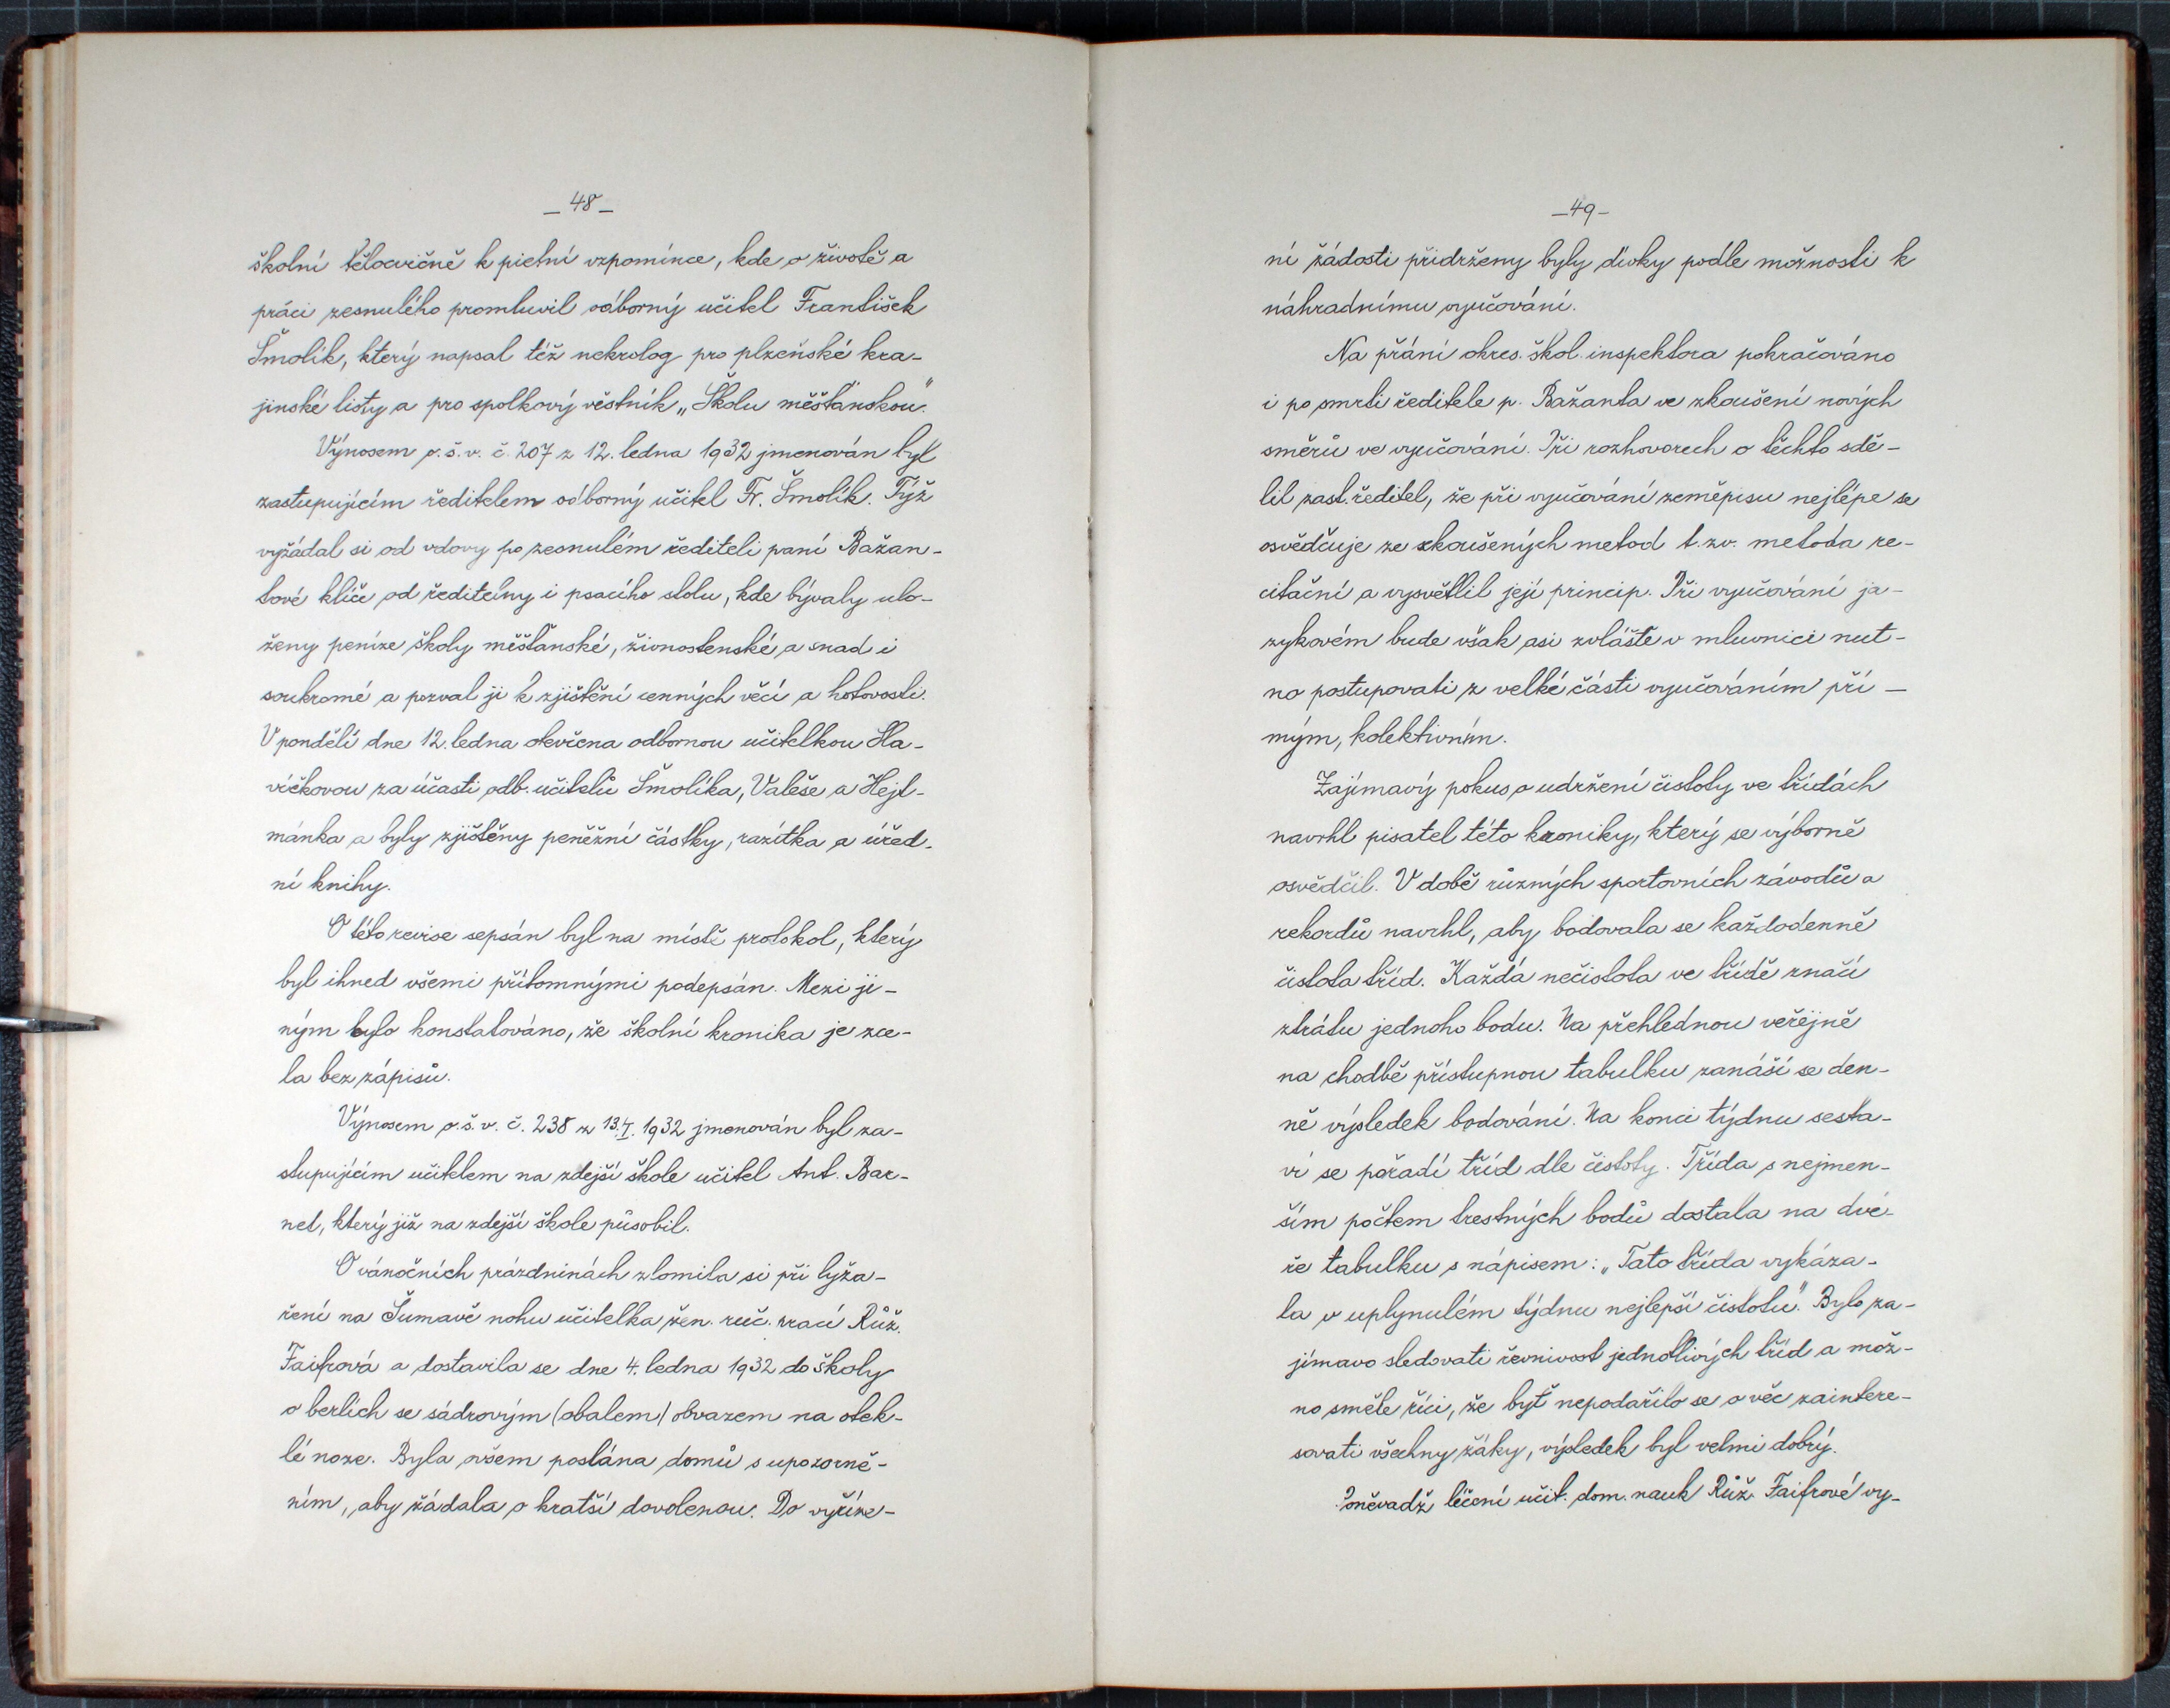 – 48 –
školní tělocvičně k pietní vzpomínce, kde o životě a
práci zesnulého promluvil odborný učitel František
Šmolík, který napsal též nekrolog pro plzeňské kra-
jinské listy a pro spolkový věstník „Školu měšťanskou".
Výnosem o. š. v. č. 207 z 12. ledna 1932 jmenován byl
zastupujícím ředitelem odborný učitel Fr. Šmolík. Týž
vyžádal si od vdovy po zesnulém řediteli paní Bažan-
tové klíče od ředitelny i psacího stolu, kde bývaly ulo-
ženy peníze školy měšťanské, živnostenské a snad i
soukromé a pozval ji k zjištění cenných věcí a hotovosti.
V pondělí dne 12. ledna otevřena odbornou učitelkou Hla-
váčkovou za účasti odb. učitelů Šmolíka, Valeše a Hejt-
mánka a byly zjištěny peněžní částky, razítka a úřed-
ní knihy.
O této revise sepsán byl na místě protokol, který
byl ihned všemi přítomnými podepsán. Mezi ji-
ným bylo konstatováno, že školní kronika je zce-
la bez zápisů.
Výnosem o. š. v. č. 238 z 13. I. 1932 jmenován byl za-
stupujícím učitelem na zdejší škole učitel Ant. Bar-
net, který již na zdejší škole působil.
O vánočních prázdninách zlomila si při lyža-
ření na Šumavě nohu učitelka žen. ruč. prací Růž.
Faifrová a dostavila se dne 4. ledna 1932 do školy
o berlích se sádrovým (obalem) obvazem na otek-
lé noze. Byla ovšem poslána domů s upozorně-
ním, aby žádala o kratší dovolenou. Do vyříze-
– 49 –
ní žádosti přidrženy byly dívky podle možnosti k
náhradnímu vyučování.
Na přání okres. škol. inspektora pokračováno
i po smrti ředitele p. Bažanta ve zkoušení nových
směrů ve vyučování. Při rozhovorech o těchto sdě-
lil zast. ředitel, že při vyučování zeměpisu nejlépe se
osvědčuje ze zkoušených metod t. zv. metoda re-
citační a vysvětlil její princip. Při vyučování ja-
zykovém bude však asi zvláště v mluvnici nut-
no postupovati z velké části vyučováním pří-
mým, kolektivním.
Zajímavý pokus o udržení čistoty ve třídách
navrhl pisatel této kroniky, který se výborně
osvědčil. V době různých sportovních závodů a
rekordů navrhl, aby bodovala se každodenně
čistota tříd. Každá nečistota ve třídě značí
ztrátu jednoho bodu. Na přehlednou veřejně
na chodbě přístupnou tabulku zanáší se den-
ně výsledek bodování. Na konci týdnu sesta-
ví se pořadí tříd dle čistoty. Třída s nejmen-
ším počtem trestných bodů dostala na dvé-
ře tabulku s nápisem: „Tato třída vykáza-
la v uplynulém týdnu nejlepší čistotu". Bylo za-
jímavo sledovati řevnivost jednotlivých tříd a mož-
no směle říci, že byť nepodařilo se o věc zaintere-
sovati všechny žáky, výsledek byl velmi dobrý.
Poněvadž léčení učit. dom. nauk Růž. Faifrové vy-